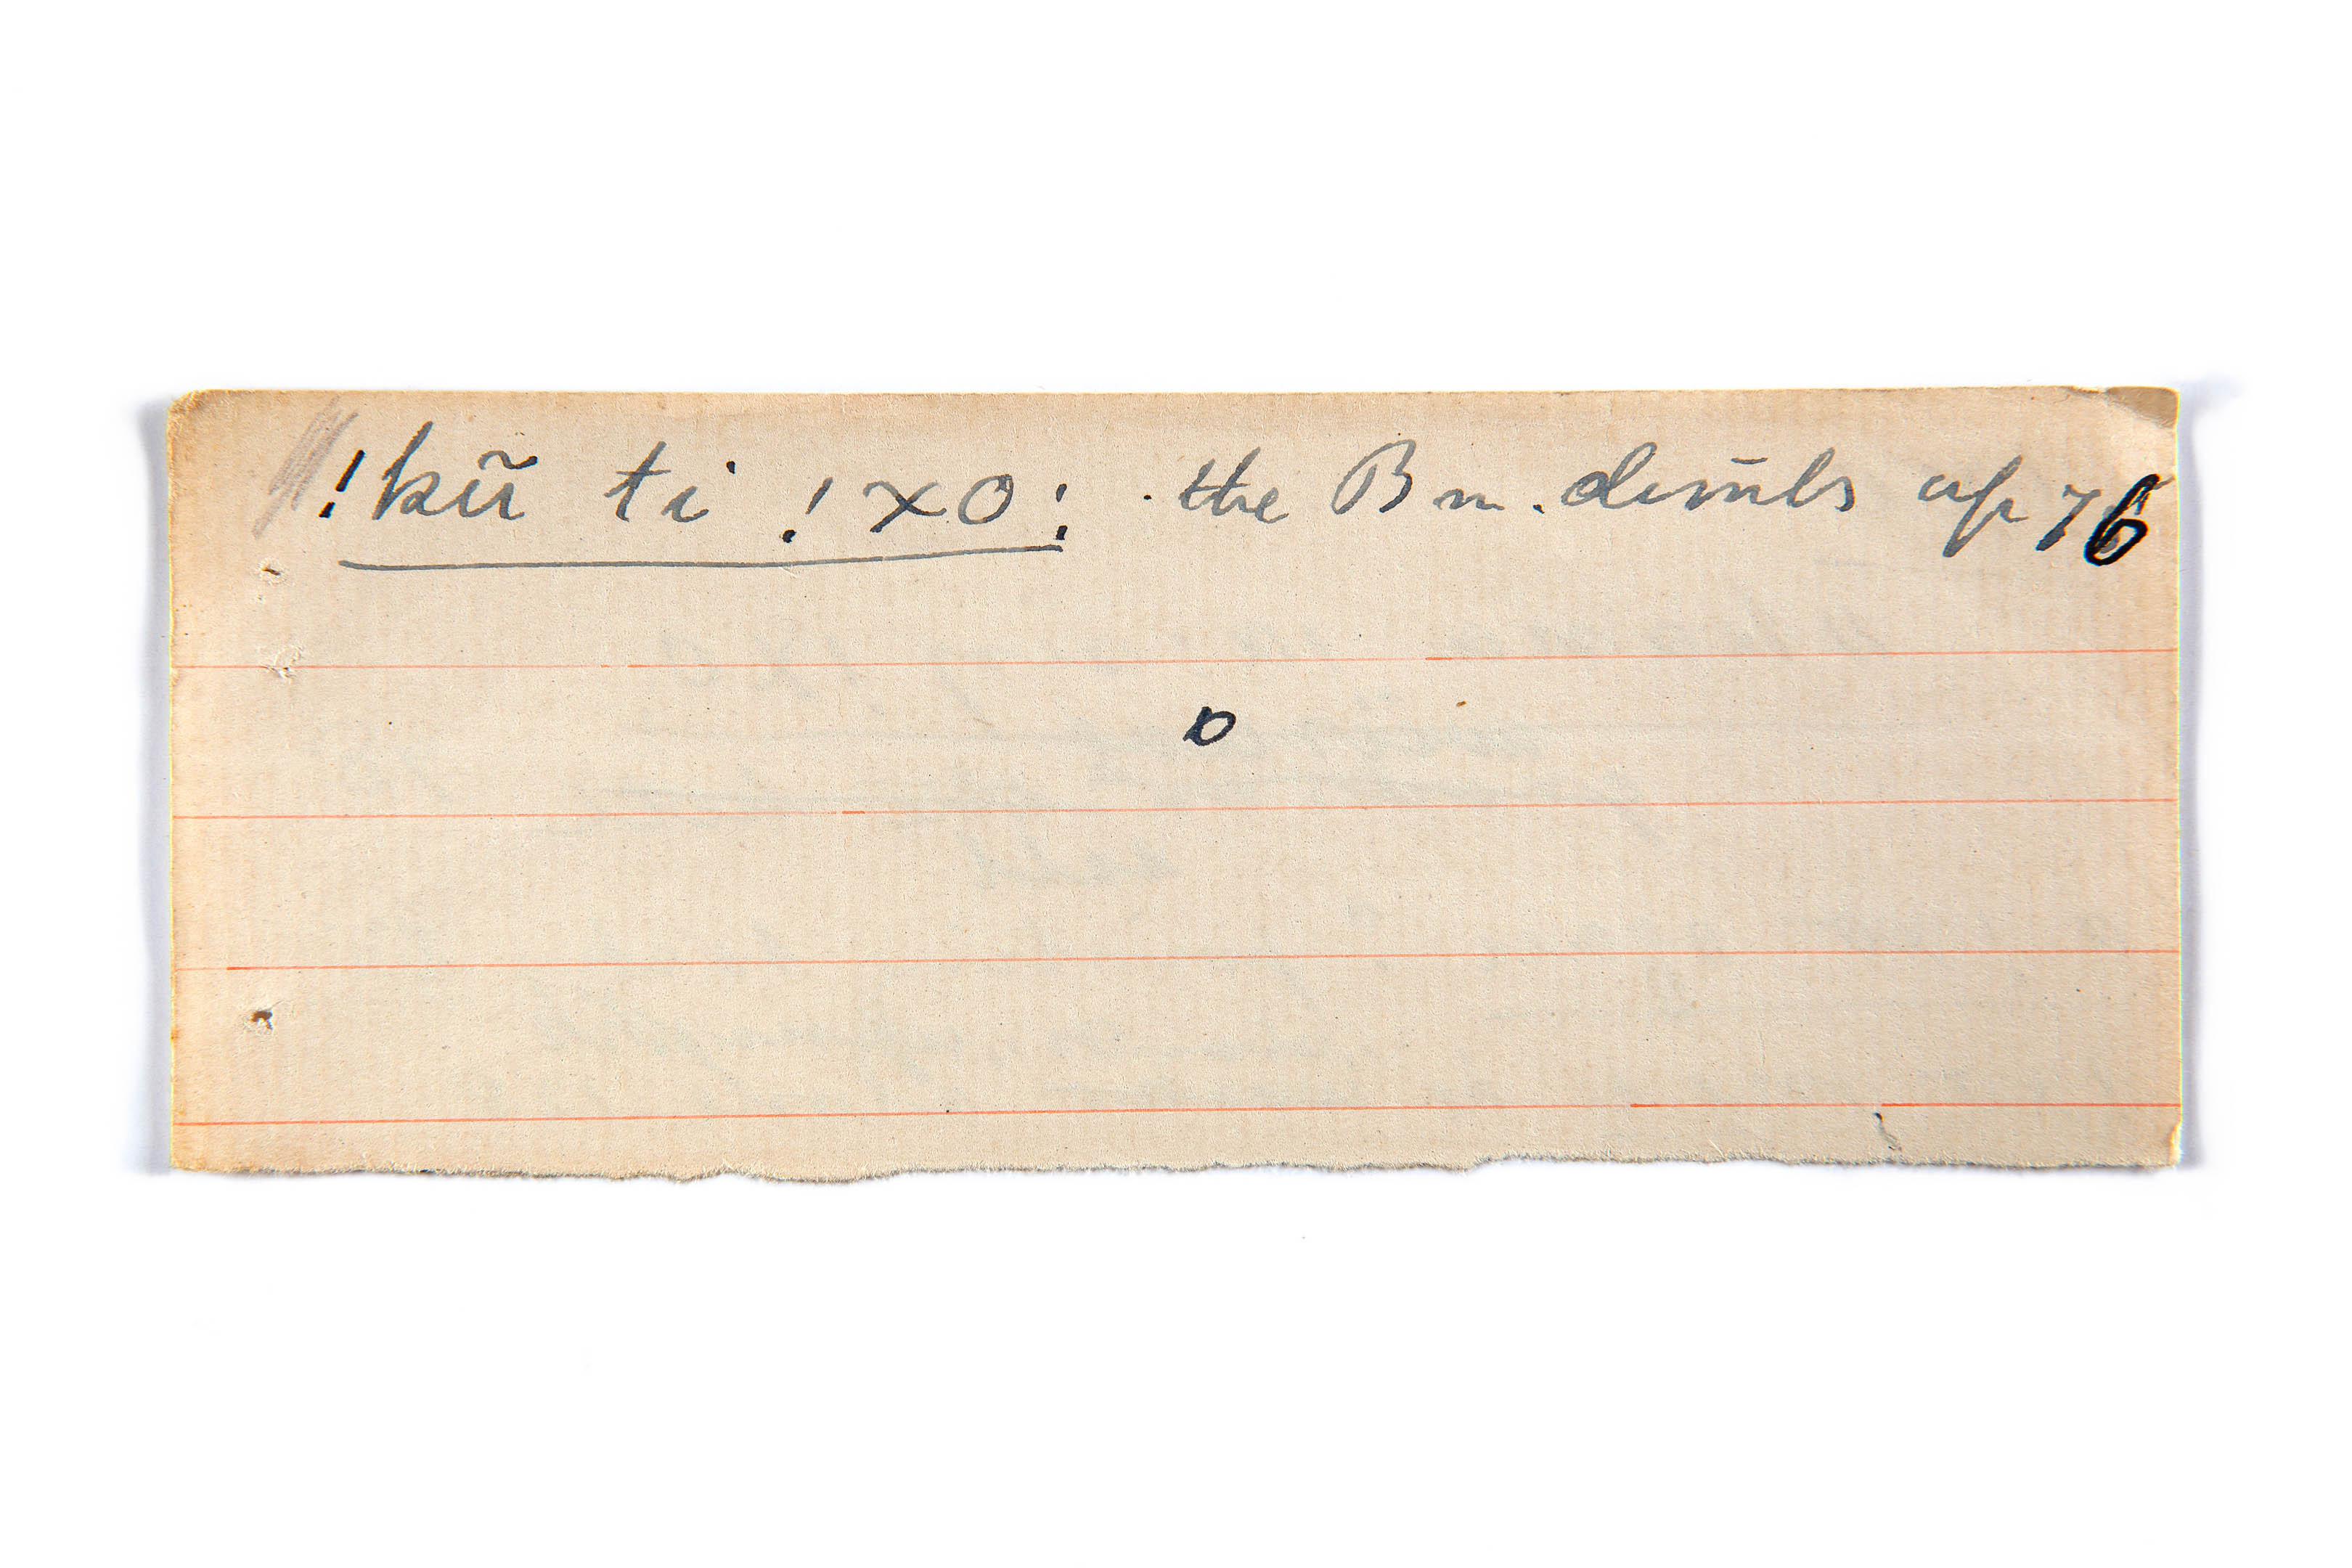 !kũ ti !xo: the Bm. climbs up 76
o